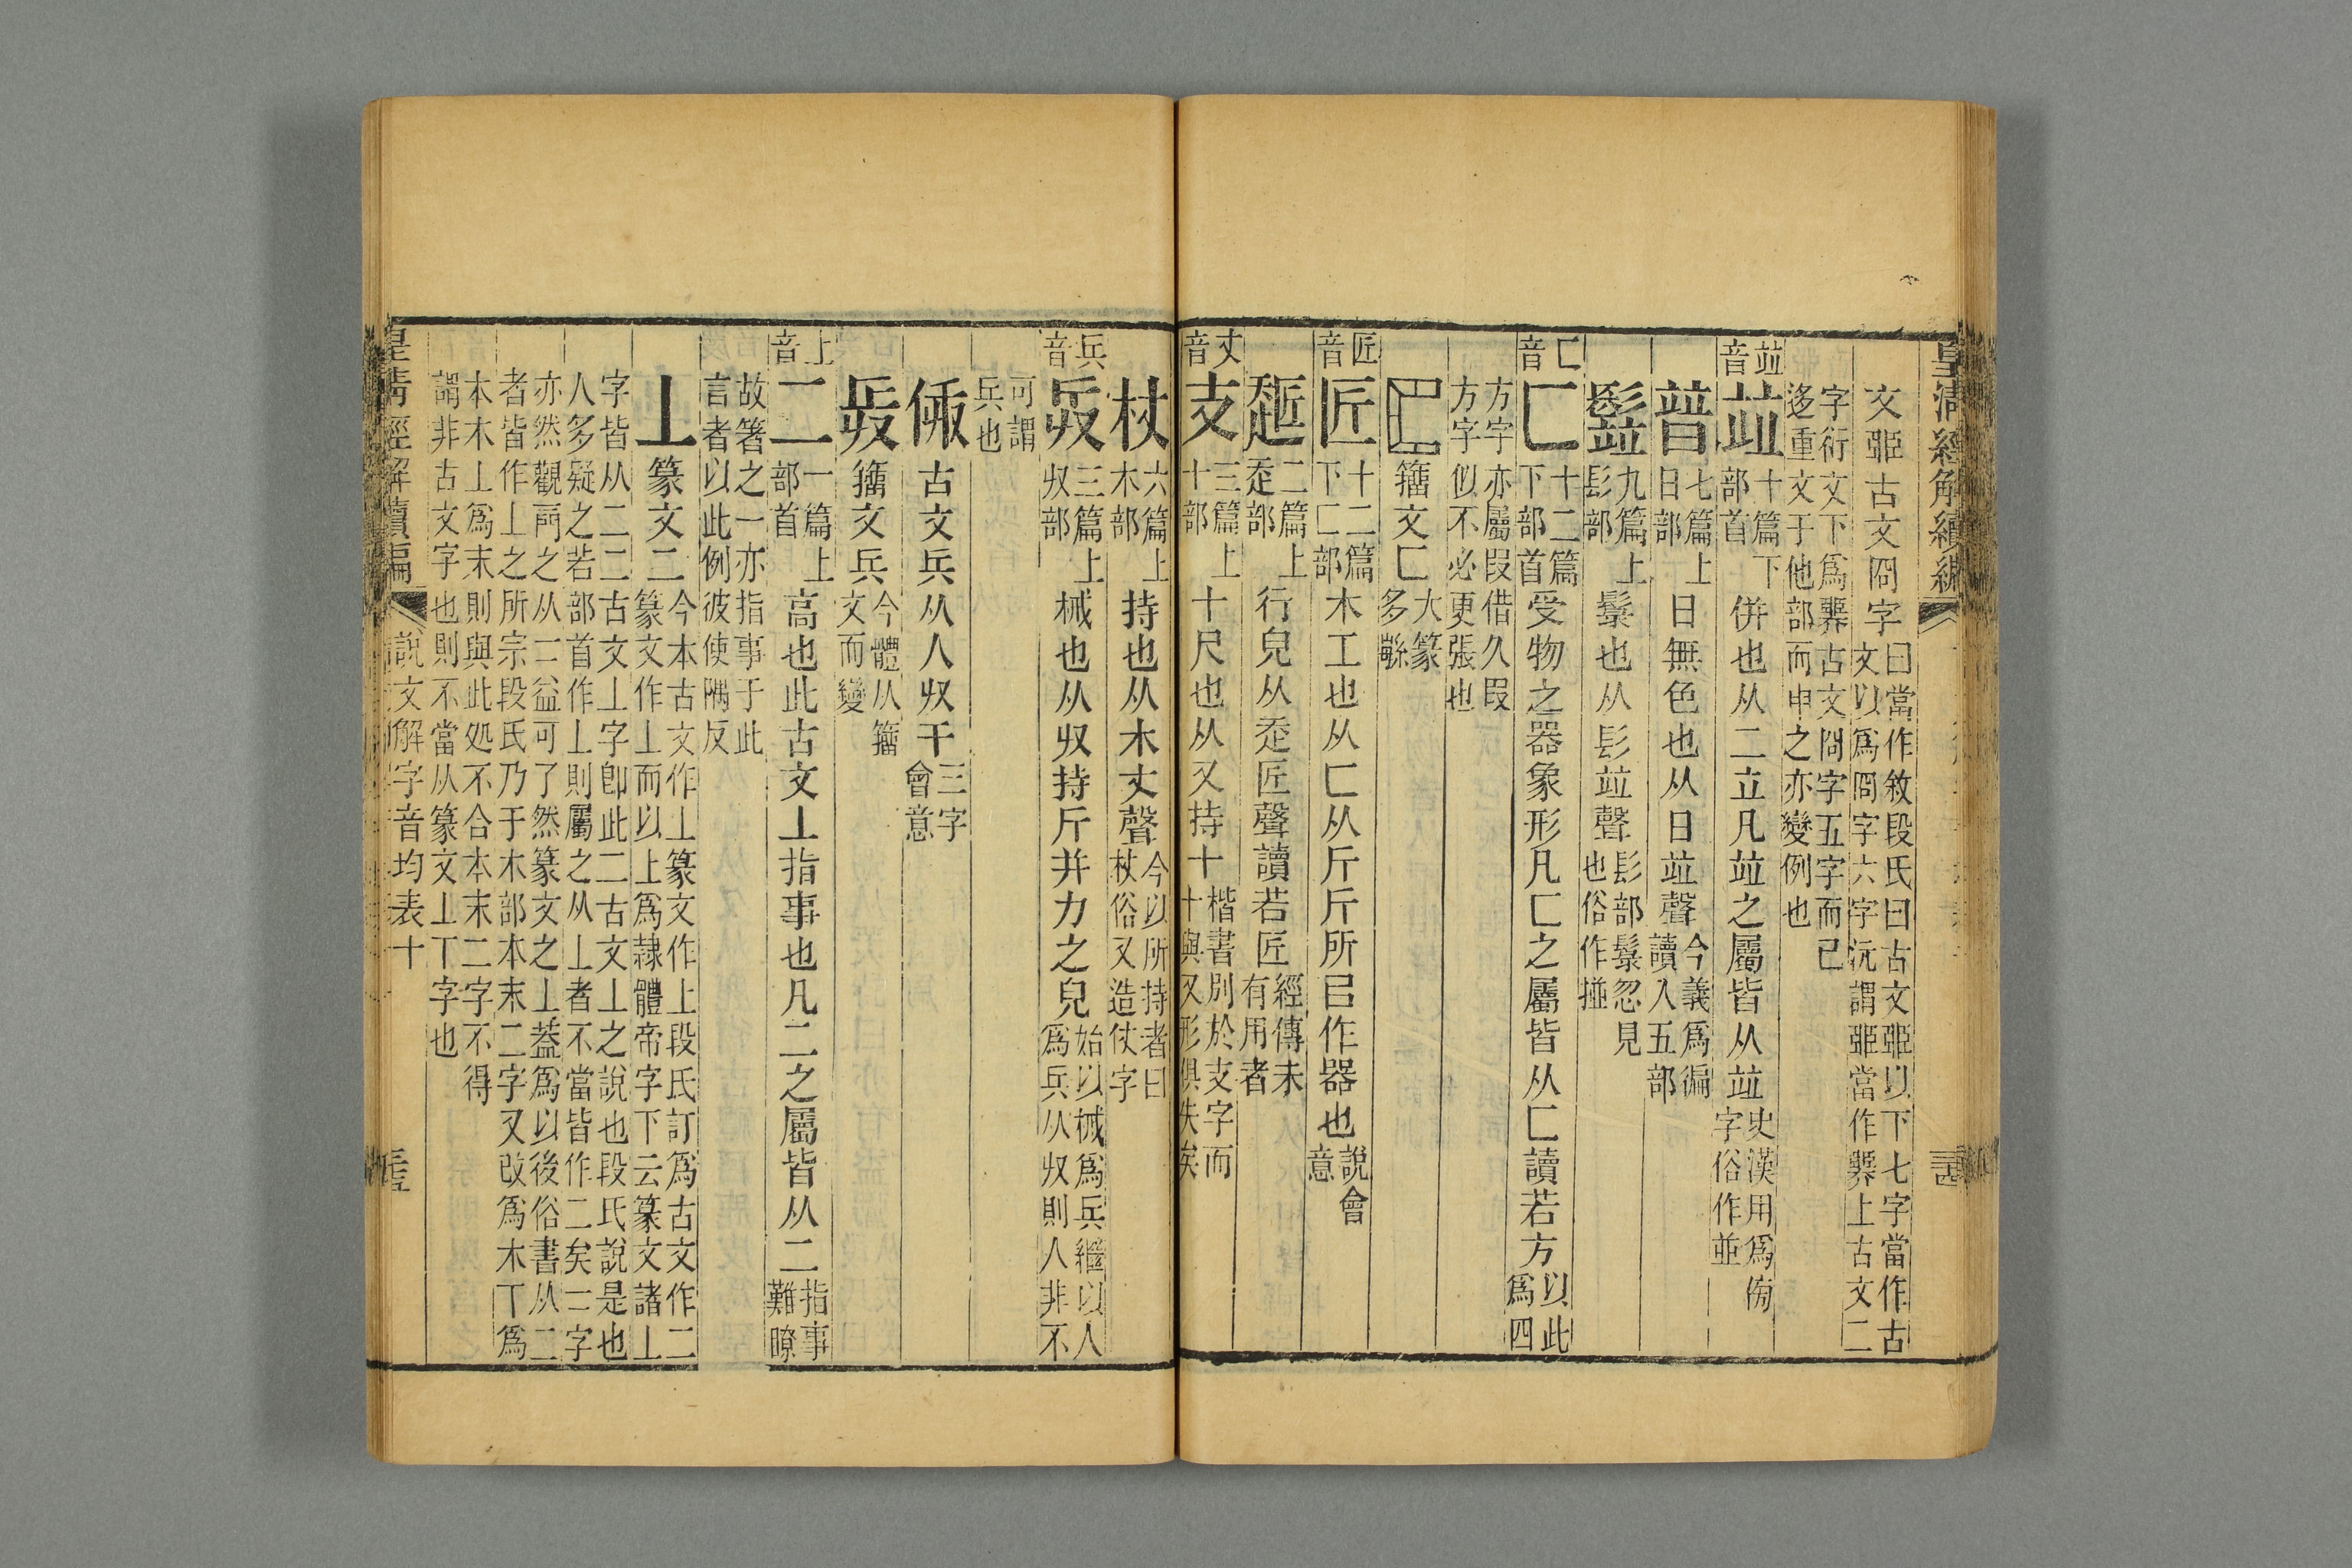 皇清經解續編
文𦣞古文囧字曰當作敘段氏曰古文𦣞以下七字當作古
文以爲囧字六字沅謂𦣞當作𢍏上古文二
字衍文下爲𢍏古文囧字五字而已
迻重文于他部而申之亦變例也
竝音
竝十篇下部首併也从二立凡竝之屬皆从竝史漢用爲傍字俗作並
普七篇上日部日無色也从日竝聲今義爲徧讀入五部
䰃九篇上髟部鬄也从髟竝聲髟部鬄忽見也俗作掽
匚音
匚十二篇下部首受物之器象形凡匚之屬皆从匚讀若方以此爲四
方字亦屬叚借久叚
方字似不必更張也
籒文匚大篆多緐
匠音
匠十二篇下匚部木工也从匚从斤斤所㠯作器也說會意
二篇上辵部行皃从辵匠聲讀若匠經傳未有用者
丈音
支三篇上十部十尺也从又持十楷書別於支字而十與又形俱失矣
杖六篇上木部持也从木丈聲今以所持者曰杖俗又造仗字
兵音
兵三篇上収部械也从収持斤并力之皃始以械爲兵繼以人爲兵从収則人非不
可謂兵也
㑂古文兵从人収干三字會意
籒文兵今體从籒文而變
上音
二一篇上部首高也此古文丄指事也凡二之屬皆从二指事難瞭
故箸之一亦指事于此
言者以此例彼使隅反
丄篆文二今本古文作丄篆文作上段氏訂爲古文作二
篆文作丄而以上爲隸體帝字下云篆文諸丄
字皆从二二古文丄字卽此二古文丄之說也段氏說是也
人多疑之若部首作丄則屬之从丄者不當皆作二矣二字
亦然觀兩之从二益可了然篆文之丄葢爲以後俗書从二
者皆作丄之所宗段氏乃于木部本末二字又改爲木丅爲
本木丄爲末則與此処不合本末二字不得
謂非古文字也則不當从篆文丄丅字也
皇清經解續編
說文解字音均表十